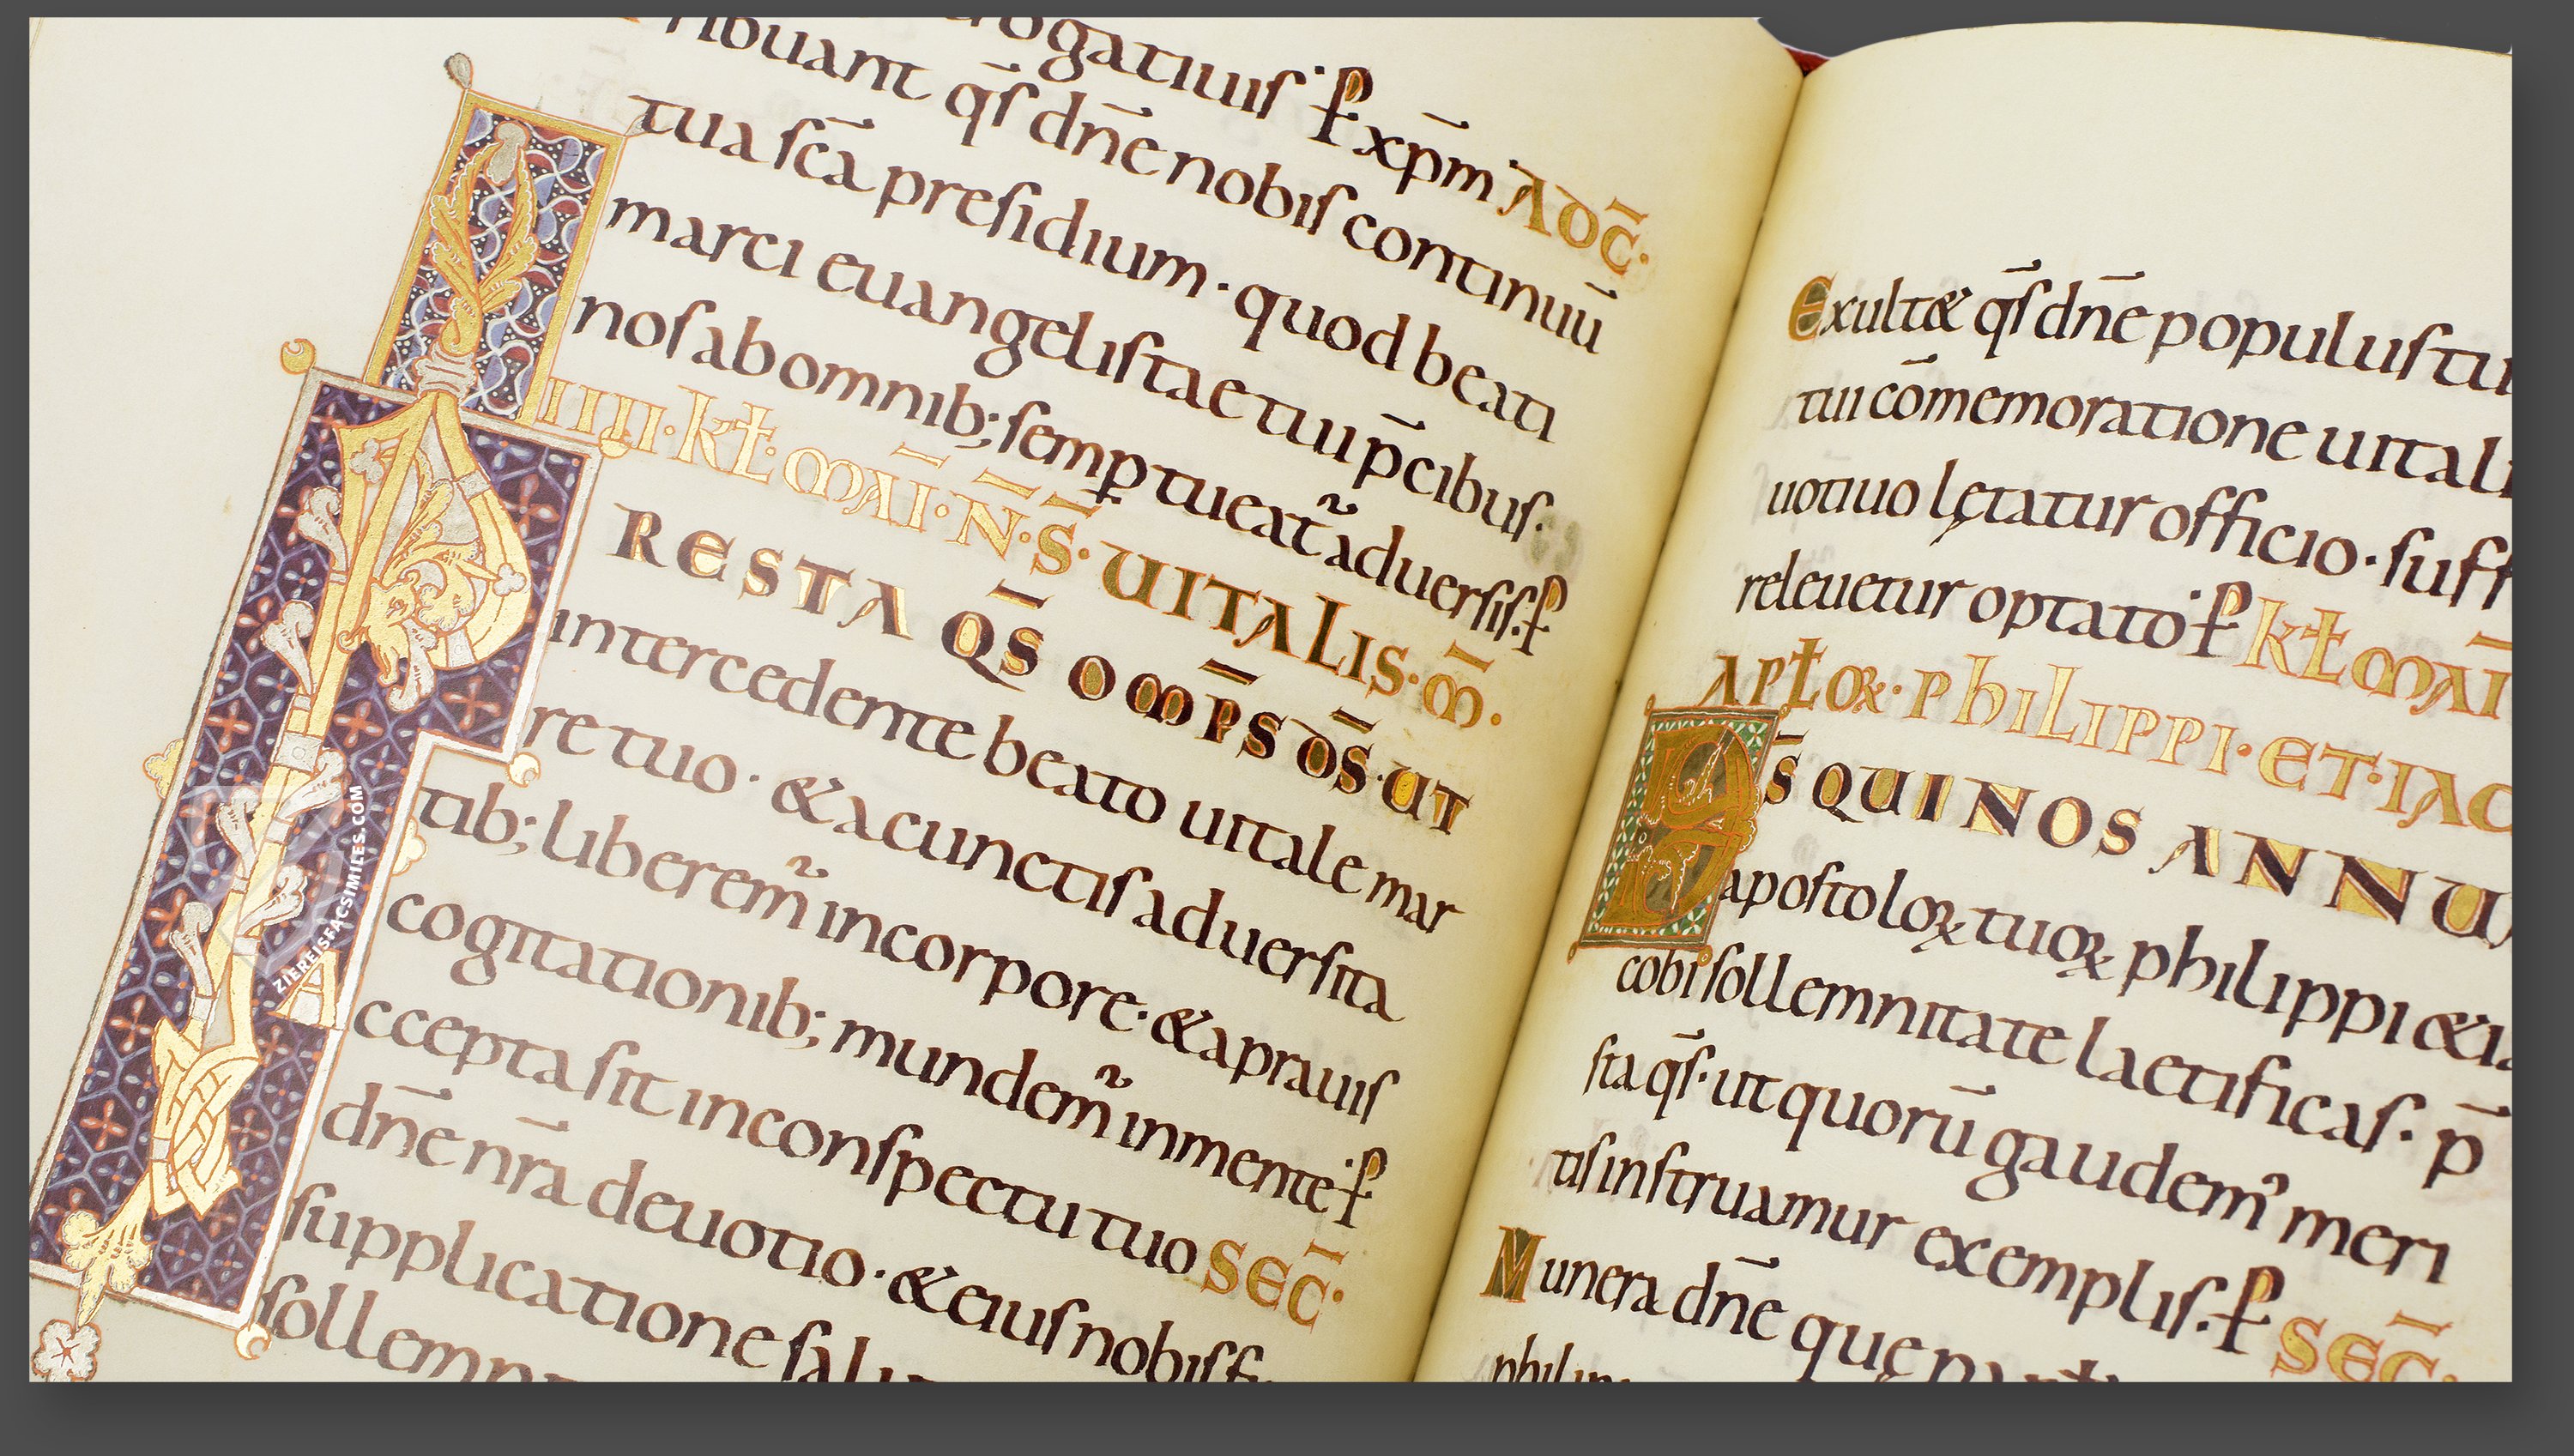 rogatiuis· ꝑ xp̄m AD C̄·
ribuant qs̄ dn̄e nobis continuū
tua sc̄a presidium · quod beati
marci euangelistae tui p̄cibus·
nos ab omnib; semp̱ tueat᷑ aduersis·ꝑ
IIII· KŁ· MAĪ· N̄· S̄· UITALIS· M̄·
PRESTA QS̄ OMP̄S DS̄· UT
intercedente beato uitale mar
re tuo · & a cunctis aduersita
tib; liberem᷑ in corpore· & a prauis
cogitationib; mundem᷑ in mente·ꝑ
Accepta sit in conspectu tuo SEC̄·
dn̄e nr̄a deuotio · & eius nobis f
supplicatione salu
sollemn
Exult& qs̄ dn̄e populus tu
tui cōmemoratione uitali
uotiuo lętatur officio · suff
releuetur optato·ꝑ KŁ MAĪ
APŁOꝜ· PHILIPPI· ET· IAC
DS̄ QUI NOS ANNU
apostoloꝝ tuoꝝ philippi & ia
cobi sollemnitate laetificas· p̄
sta qs̄· ut quorū gaudem᷒ meri
tis instruamur exemplis·ꝑ SEC̄·
Munera dn̄e quę
philipp
ZIEREISFACSIMILES.COM